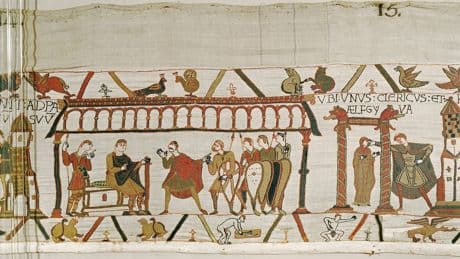 15.
NIT:AD PA
SVV
VBI:VNVS:CLERICVS:ET
ÆLFGYVA